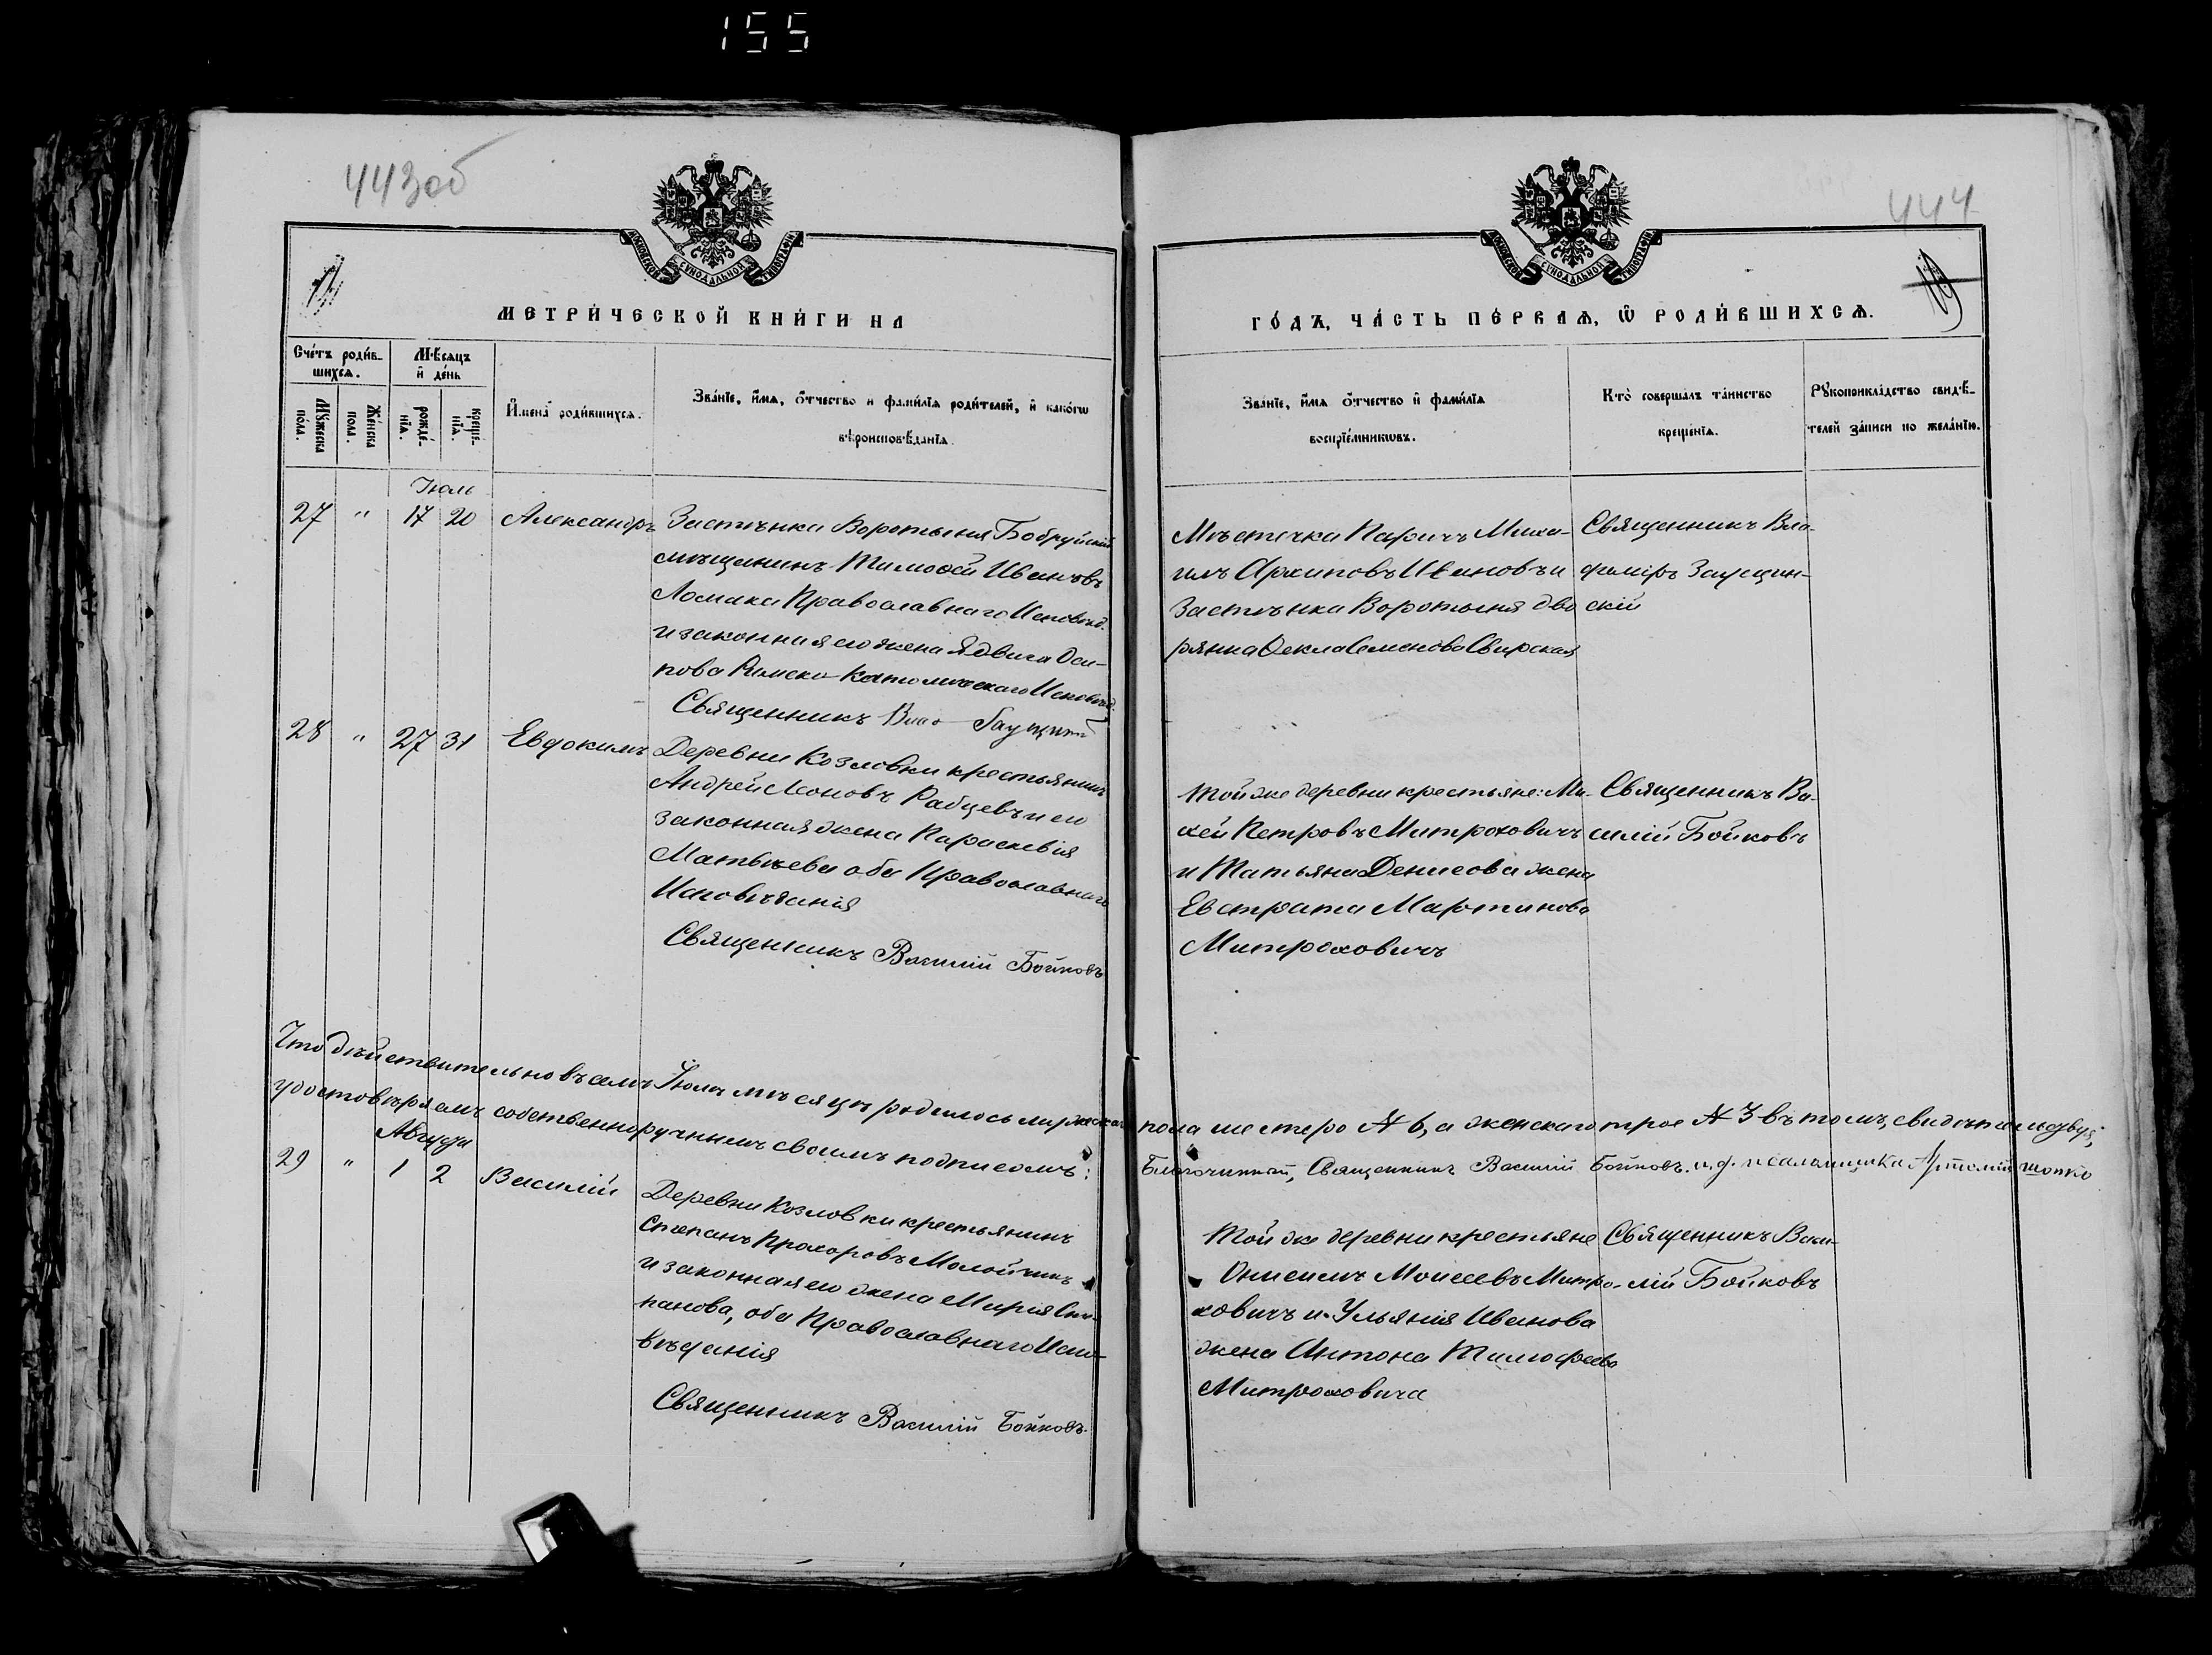 155
443об
444
МОСКОВСКОЙ СѴНОДАЛЬНОЙ ТИПОГРАФІИ
МОСКОВСКОЙ СѴНОДАЛЬНОЙ ТИПОГРАФІИ
МЕТРИ́ЧЕСКОЙ КНИ́ГИ НА
ГО́ДЪ, ЧА́СТЬ ПЕ́РВАѦ, Ѡ҆ РОДИ́ВШИХСѦ.
Сче́тъ роди́в-
шихсѧ.
Мѣ́сяцъ
и҆ де́нь
Мꙋ́жеска
по́ла.
Же́нска
по́ла.
рожде́-
нїѧ.
креще́-
нїѧ.
И҆мена̀ роди́вшихсѧ.
Зва́нїе, и҆́мѧ, ѻ҆́тчество и҆ фами́лїѧ роди́телей, и҆ како́гѡ
вѣроисповѣ́данїѧ.
Зва́нїе, и҆́мѧ ѻ҆́тчество и҆ фами́лїѧ
воспрїе́мникѡвъ.
Кто̀ соверша́лъ та́инство
креще́нїѧ.
Рꙋкоприкла́дство свидѣ́-
телей за́писи по жела́нїю.
Іюль
27 " 17 20 Александръ
Застѣнка Воротыня Бобруйскій
мѣщанинъ Тимоѳей Ивановъ
Ломака Православнаго Исповѣд.
и законная его жена Ядвига Оси-
пова Римско-Католическаго Исповѣд.
Священникъ
Мѣстечка Паричъ Миха-
илъ Архиповъ Ивановъ и
Застѣнка Воротыня дво
рянка Ѳекла Семенова Свирская
Священникъ Вла-
диміръ Заусцин-
скій
28 " 27 31 Евдокимъ
Деревни Козловки крестьянинъ
Андрей Леоновъ Рабцевъ и его
законная жена Параскевія
Матвѣева оба Православнаго
Исповѣданія
Священникъ Василій Бойковъ
Той же деревни крестьяне: Ми-
хей Петровъ Митроховичъ
и Татьяна Денисова жена
Евстрата Мартинова
Митроховичъ
Священникъ Ва-
силій Бойковъ
Что дѣйствительно въ семъ Іюлѣ мѣсяцѣ родилось мужескаго пола шестеро № 6, а женскаго трое № 3 въ томъ, свидѣтельствуя,
удостовѣряемъ собственноручнымъ своимъ подписомъ: Благочинный, Священникъ Василій Бойковъ. и.д. псаломщика
Августъ
29 " 1 2 Василій
Деревни Козловки крестьянинъ
Степанъ Прохоровъ Молойчикъ
и законная его жена Марія Сте-
панова, оба Православнаго Испо-
вѣданія
Священникъ Василій Бойковъ.
Той же деревни крестьяне
Онисимъ Моисеевъ Митро-
ховичъ и Ульянія Иванова
жена Антона Тимофеева
Митроховича
Священникъ Васи-
лій Бойковъ